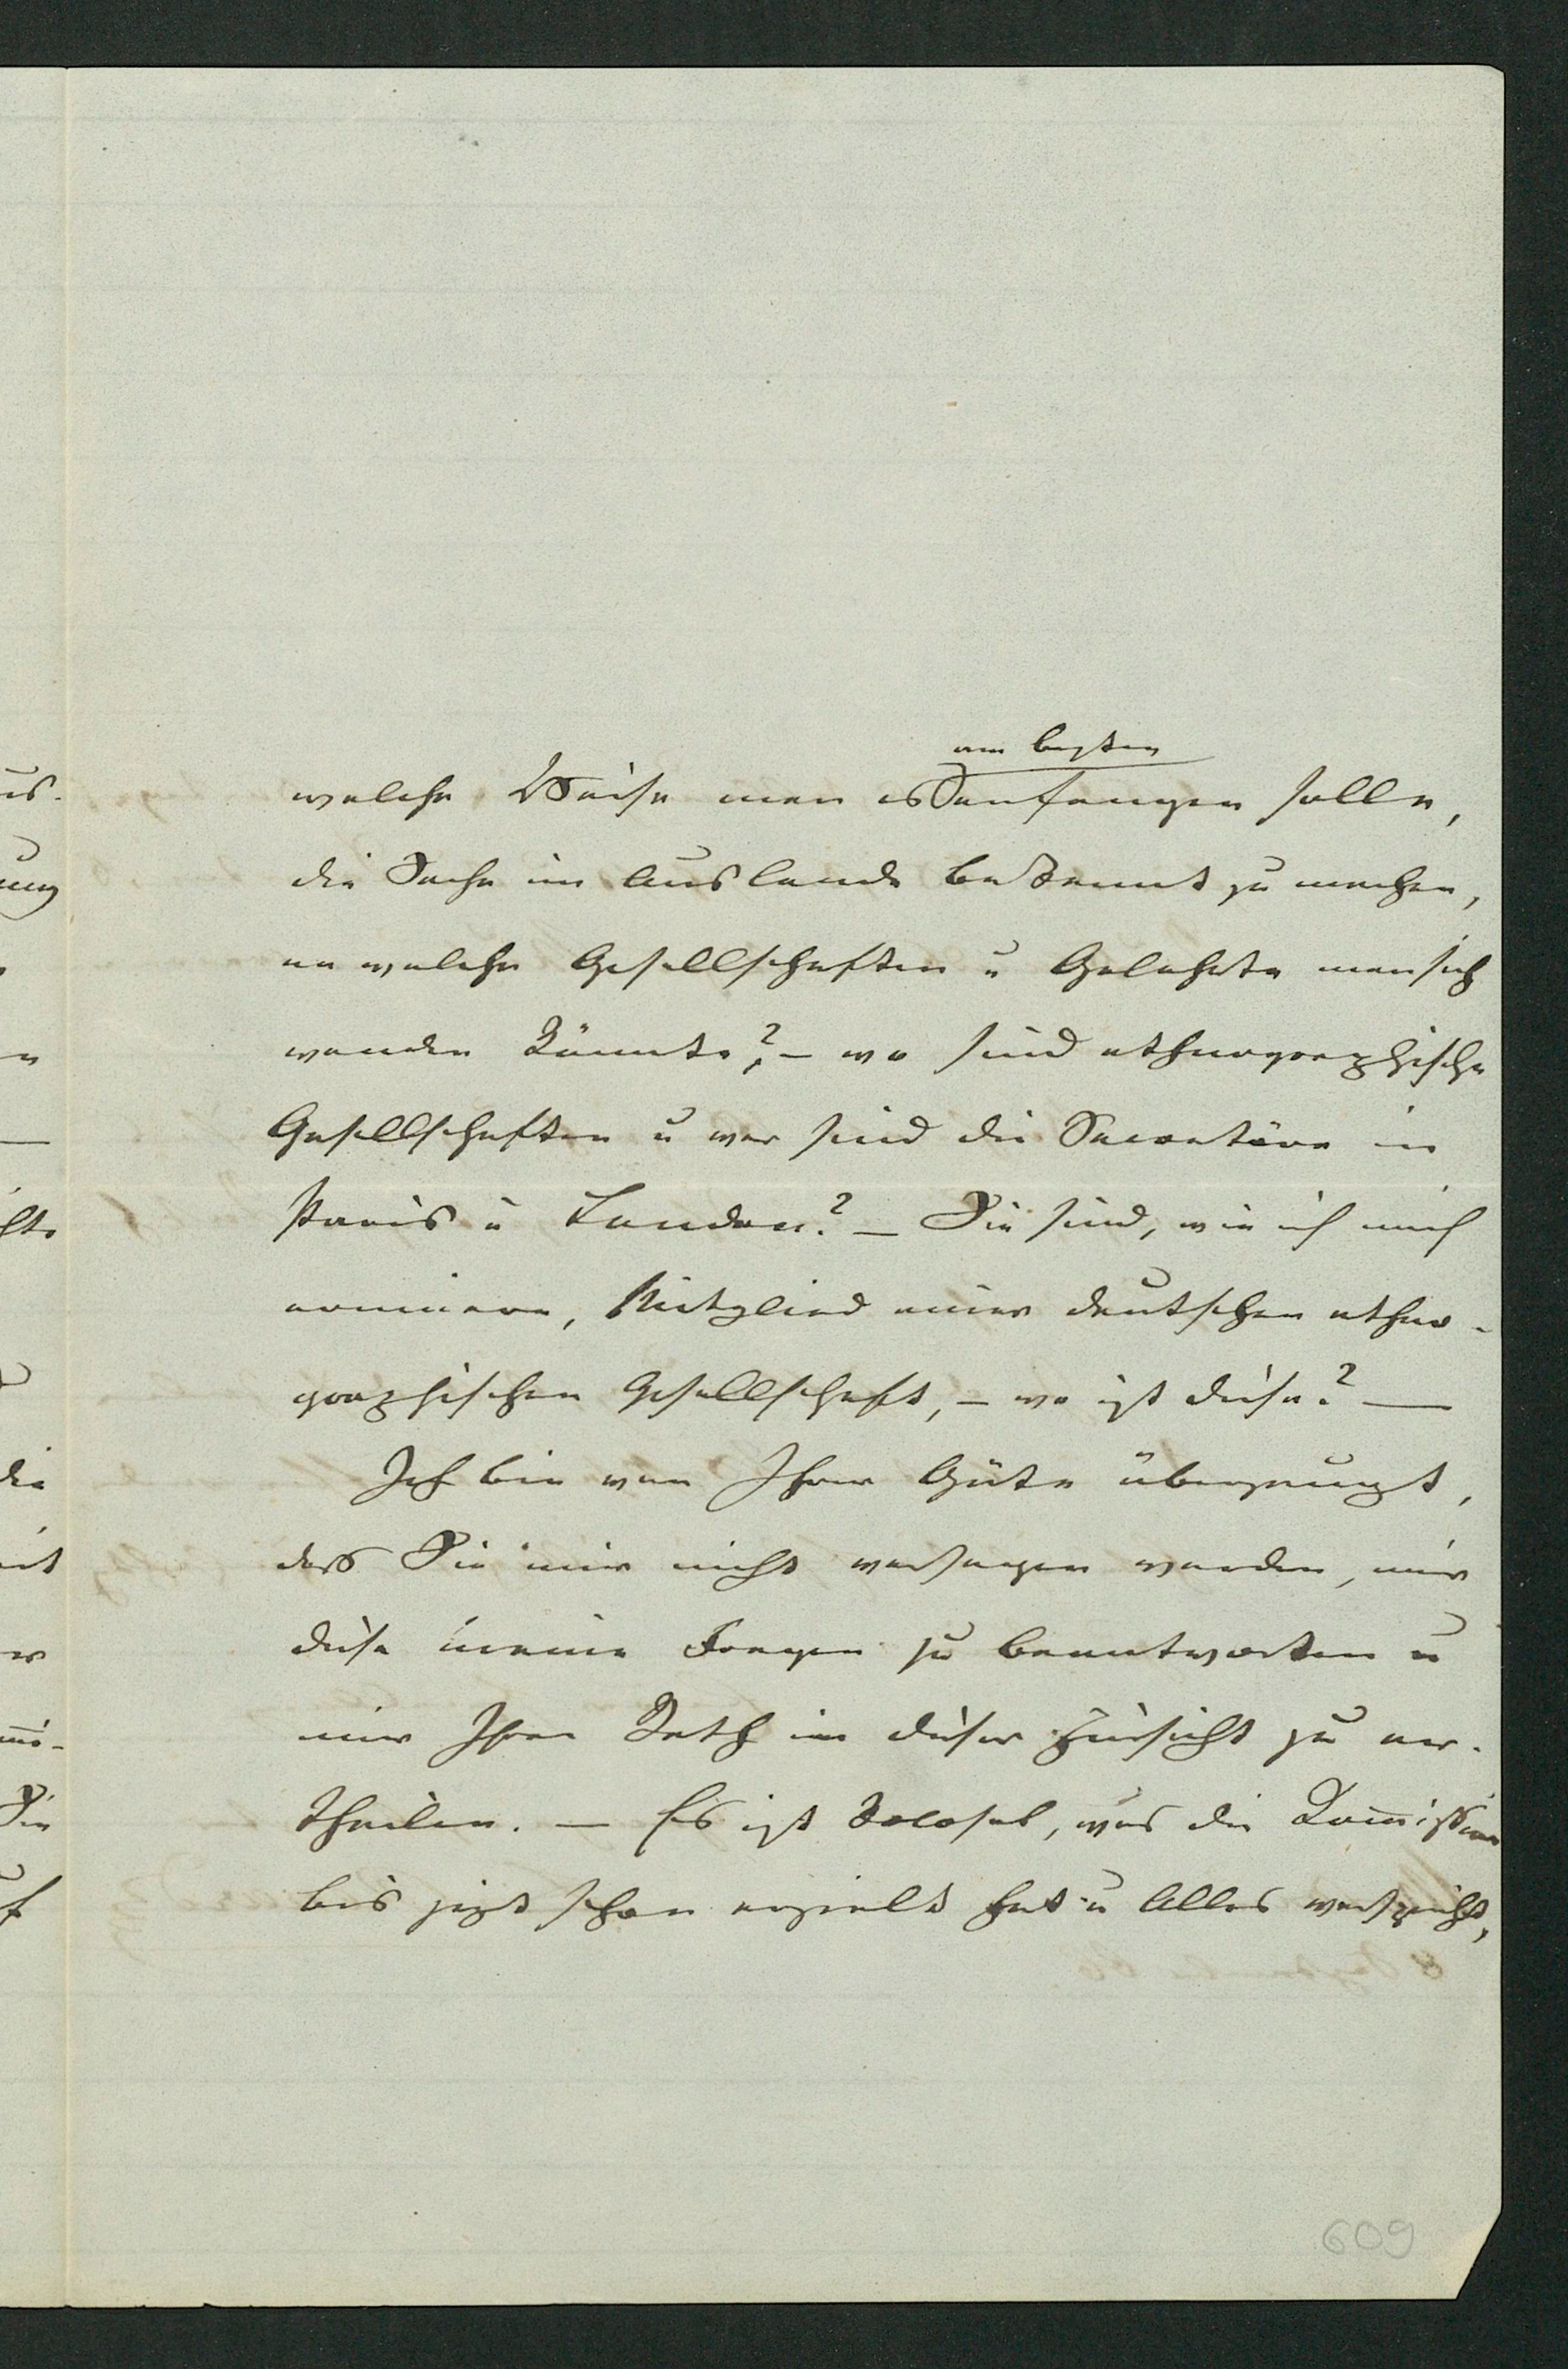 am besten
welche Weise man es anfangen solle,
die Sache im Auslande bekannt zu machen,
an welche Gesellschaften u Gelehrte man sich
wenden könnte?, – wo sind ethnographische
Gesellschaften u wer sind die Secretäre in
Paris u London? – Sie sind, wie ich mich
erinnere, Mitglied einer deutschen ethno-
graphischen Gesellschaft, – wo ist diese? —
Ich bin von Ihrer Güte überzeugt,
dass Sie mir nicht versagen werden, mir
diese meine Fragen zu beantworten u
mir Ihren Rath in dieser Hinsicht zu er-
theilen. — Es ist kolosal, was die Kom̅ission
bis jezt schon erzielt hat u Alles verspricht,
609